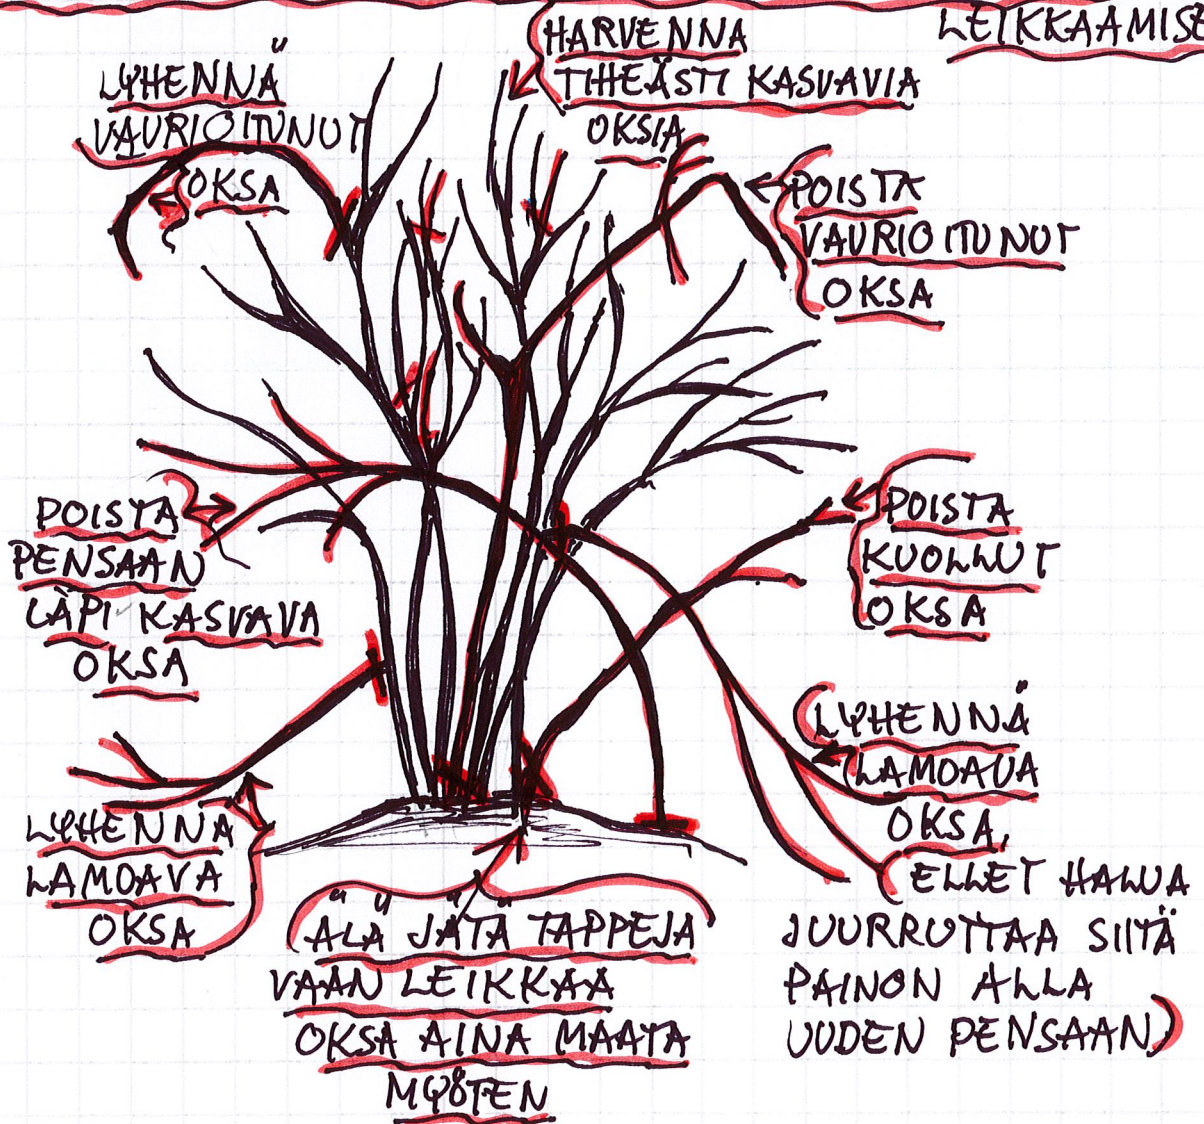 LEIKKAAMISE
HARVENNA
TIHEÄSTI KASVAVIA
OKSIA
LYHENNÄ
VAURIOITUNUT
OKSA
POISTA
VAURIOITUNUT
OKSA
POISTA
PENSAAN
LÄPI KASVAVA
OKSA
POISTA
KUOLLUT
OKSA
LYHENNÄ
LAMOAVA
OKSA
LYHENNÄ
LAMOAVA
OKSA,
ELLET HALUA
JUURRUTTAA SIITÄ
PAINON ALLA
UUDEN PENSAAN)
ÄLÄ JÄTÄ TAPPEJA
VAAN LEIKKAA
OKSA AINA MAATA
MYÖTEN